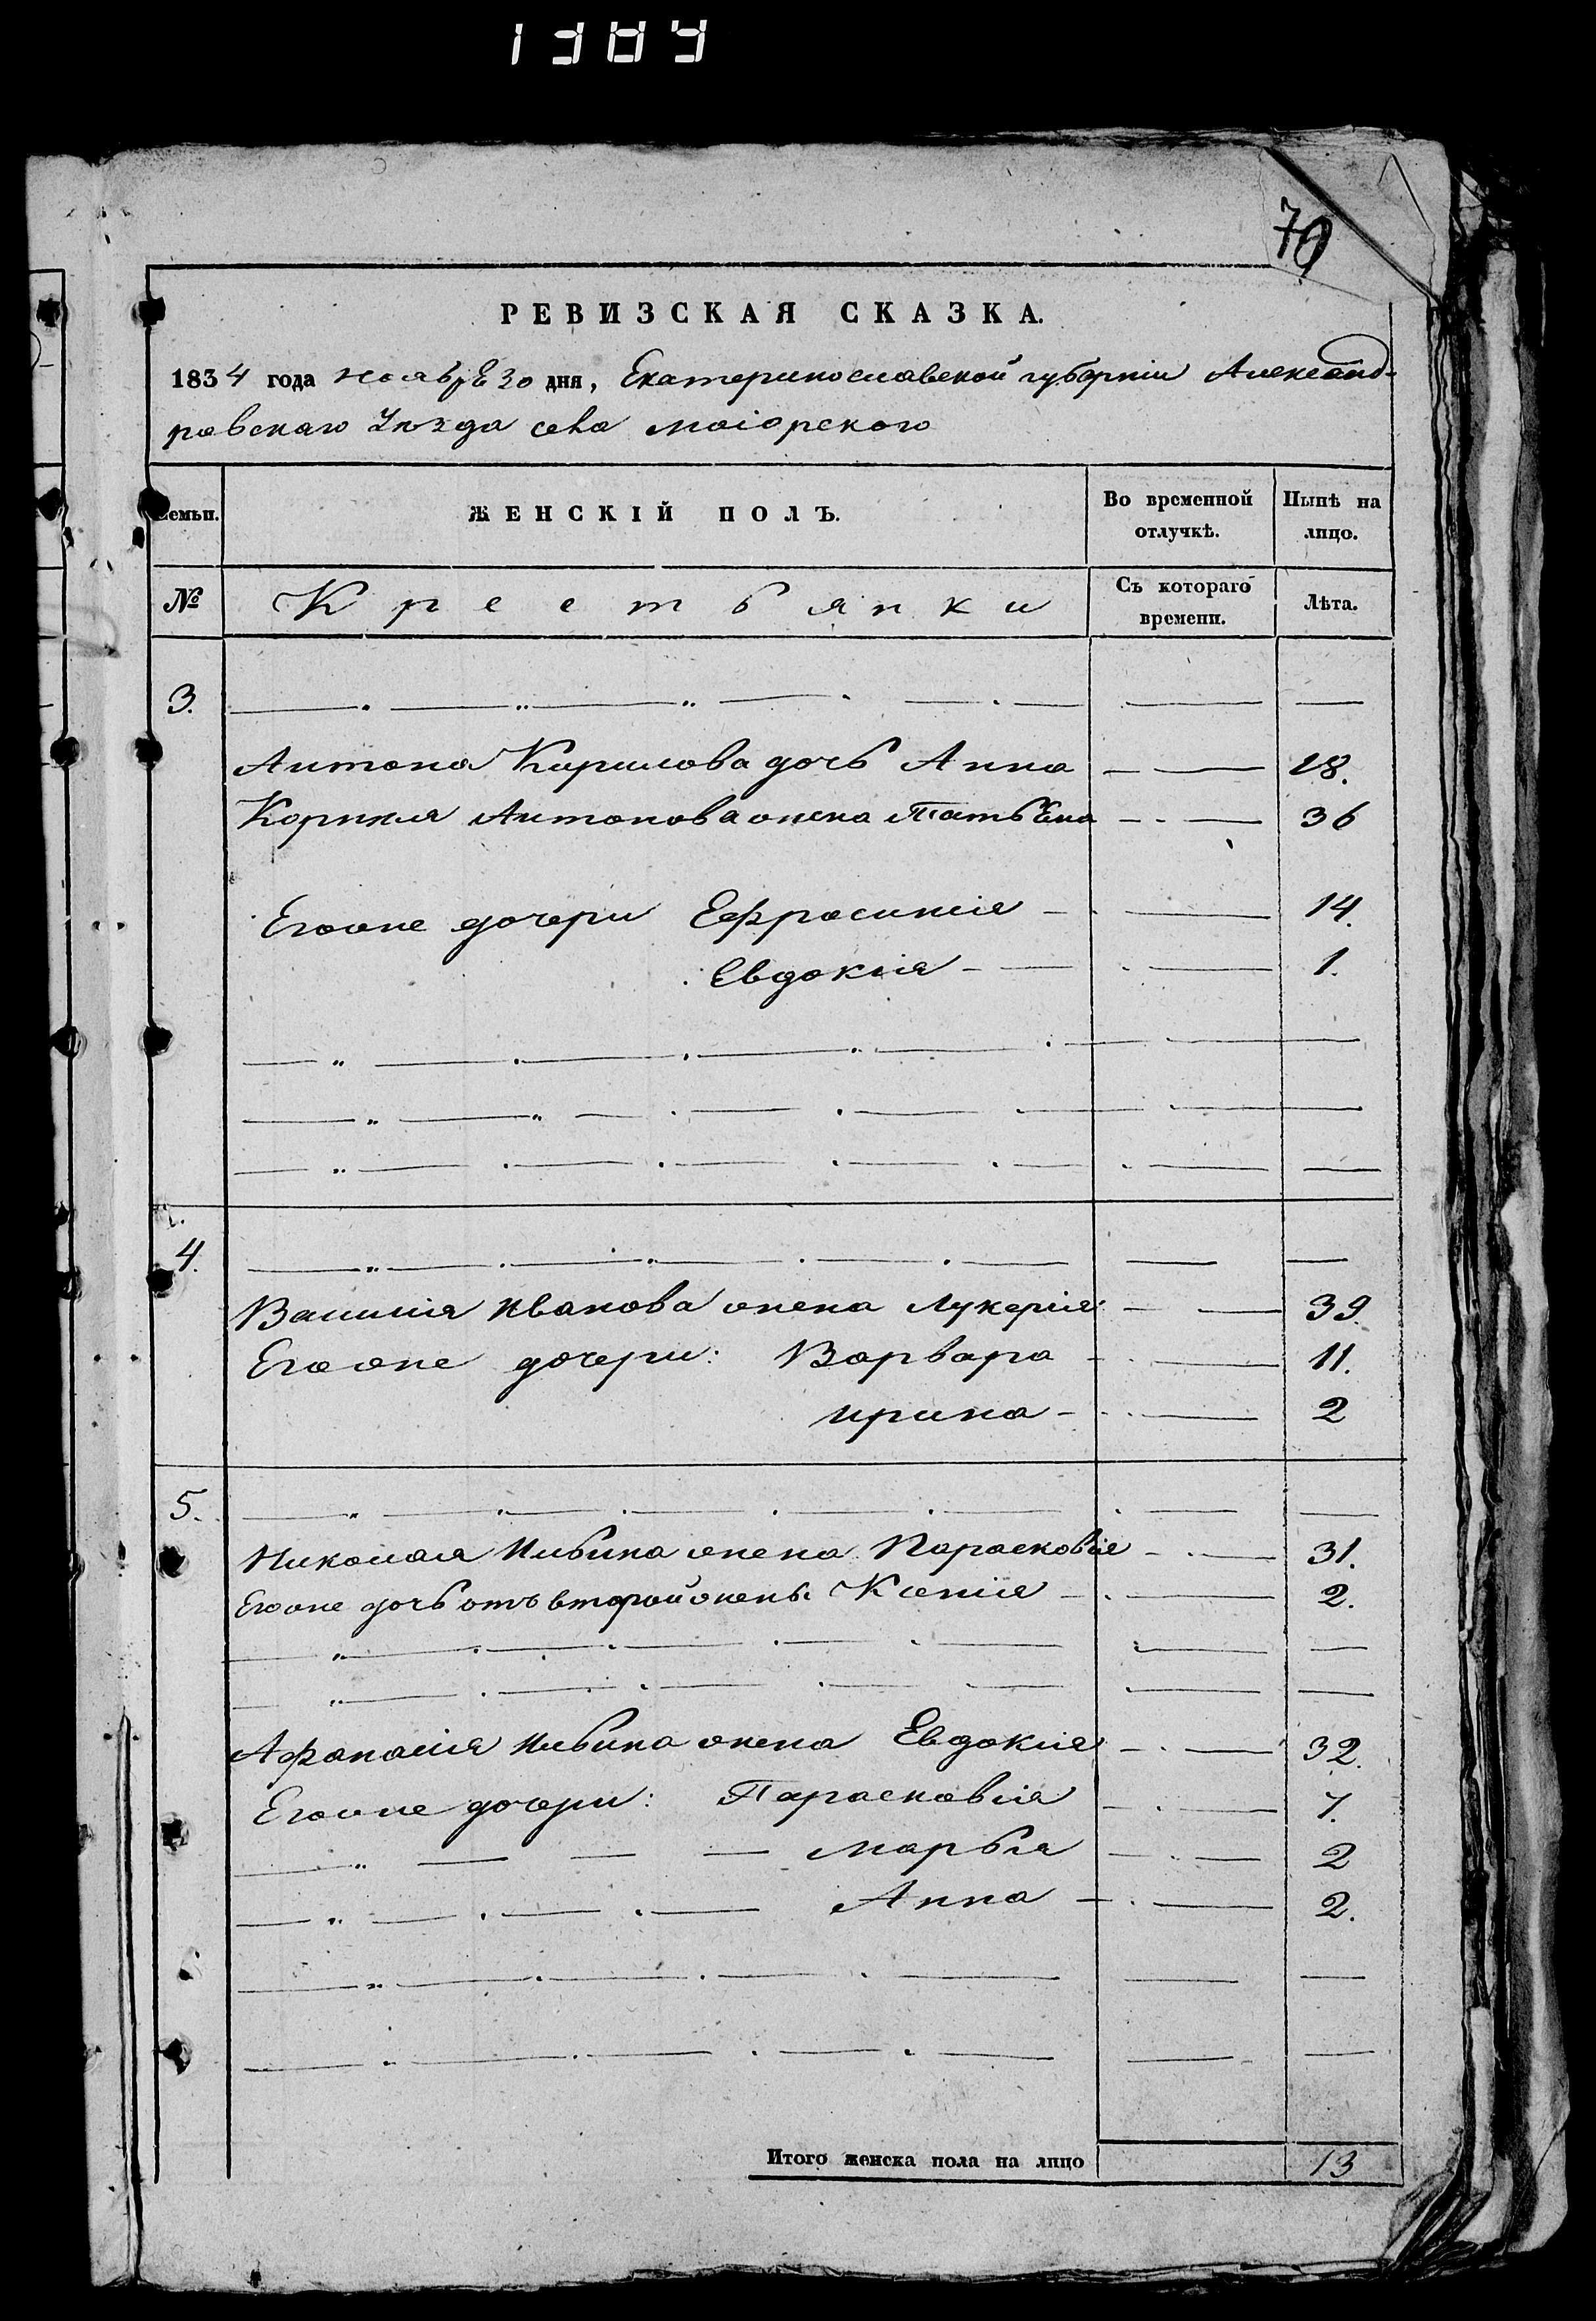 70
РЕВИЗСКАЯ СКАЗКА.
1834 года ноября 30 дня, Екатеринославской губернии Александ-
ровскаго Уезда села маіорского
Семьи. ЖЕНСКІЙ ПОЛЪ. Во временной отлучкѣ. Нынѣ на лицо.
№ Крестьянки Съ котораго времени. Лѣта.
3.
Антона Кирилова дочь Анна 18.
Корнея Антонова жена Татьяна 36
Егоже дочери Ефросинія 14.
Евдокия 1.
4.
Василия Иванова жена Лукерия 39.
Егоже дочери: Варвара 11.
Ирина 2
5.
Николая Ильина жена Парасковія 31.
Егоже дочь отъ второй жены Ксения 2.
Афанасія Ильина жена Евдокия 32.
Егоже дочери: Парасковія 7.
Марья 2
Анна 2.
Итого женска пола на лицо 13